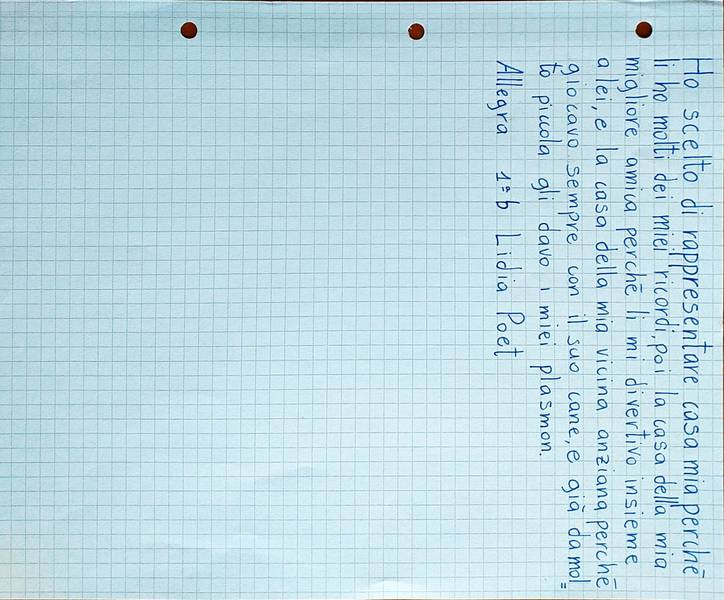 Ho scelto di rappresentare casa mia perchē
lì ho molti dei miei ricordi, poi la casa della mia
migliore amica perchē lì mi divertivo insieme
a lei, e la casa della mia vicina anziana perchē
giocavo sempre con il suo cane, e giā da mol=
to piccola gli davo i miei plasmon.
Allegra 1ªb Lidia Poet